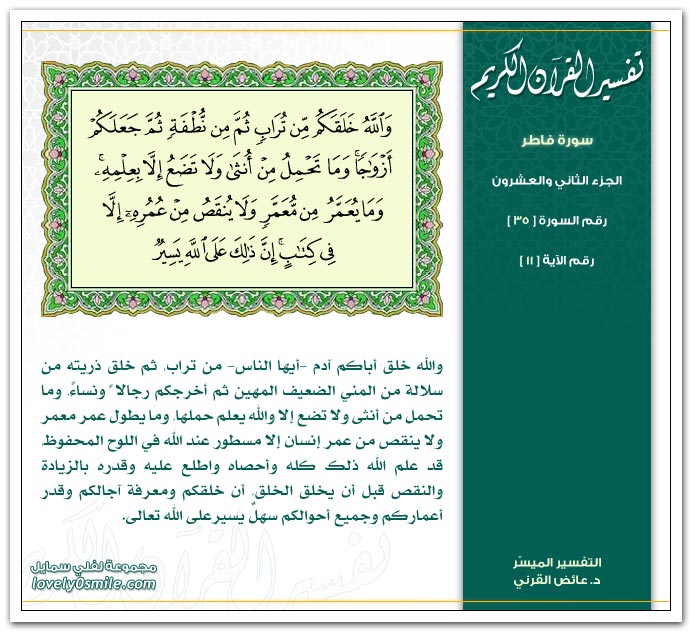 تفسير القرآن الكريم
سورة فاطر
الجزء الثاني والعشرون
رقم السورة [ ٣٥ ]
رقم الآية [ ١١ ]
وَٱللَّهُ خَلَقَكُم مِّن تُرَابٍ ثُمَّ مِن نُّطْفَةٍ ثُمَّ جَعَلَكُمْ
أَزْوَٰجًا ۚ وَمَا تَحْمِلُ مِنْ أُنثَىٰ وَلَا تَضَعُ إِلَّا بِعِلْمِهِۦ ۚ
وَمَا يُعَمَّرُ مِن مُّعَمَّرٍ وَلَا يُنقَصُ مِنْ عُمُرِهِۦٓ إِلَّا
فِى كِتَٰبٍ ۚ إِنَّ ذَٰلِكَ عَلَى ٱللَّهِ يَسِيرٌ
والله خلق أباكم آدم -أيها الناس- من تراب، ثم خلق ذريته من
سلالة من المني الضعيف المهين ثم أخرجكم رجالاً ونساءً، وما
تحمل من أنثى ولا تضع إلا والله يعلم حملها، وما يطول عمر معمر
ولا ينقص من عمر إنسان إلا مسطور عند الله في اللوح المحفوظ،
قد علم الله ذلك كله وأحصاه واطلع عليه وقدره بالزيادة
والنقص قبل أن يخلق الخلق، أن خلقكم ومعرفة آجالكم وقدر
أعماركم وجميع أحوالكم سهلٌ يسير على الله تعالى.
التفسير الميسّر
د. عائض القرني
مجموعة لفلي سمايل
lovely0smile.com
تفسير القرآن الكريم